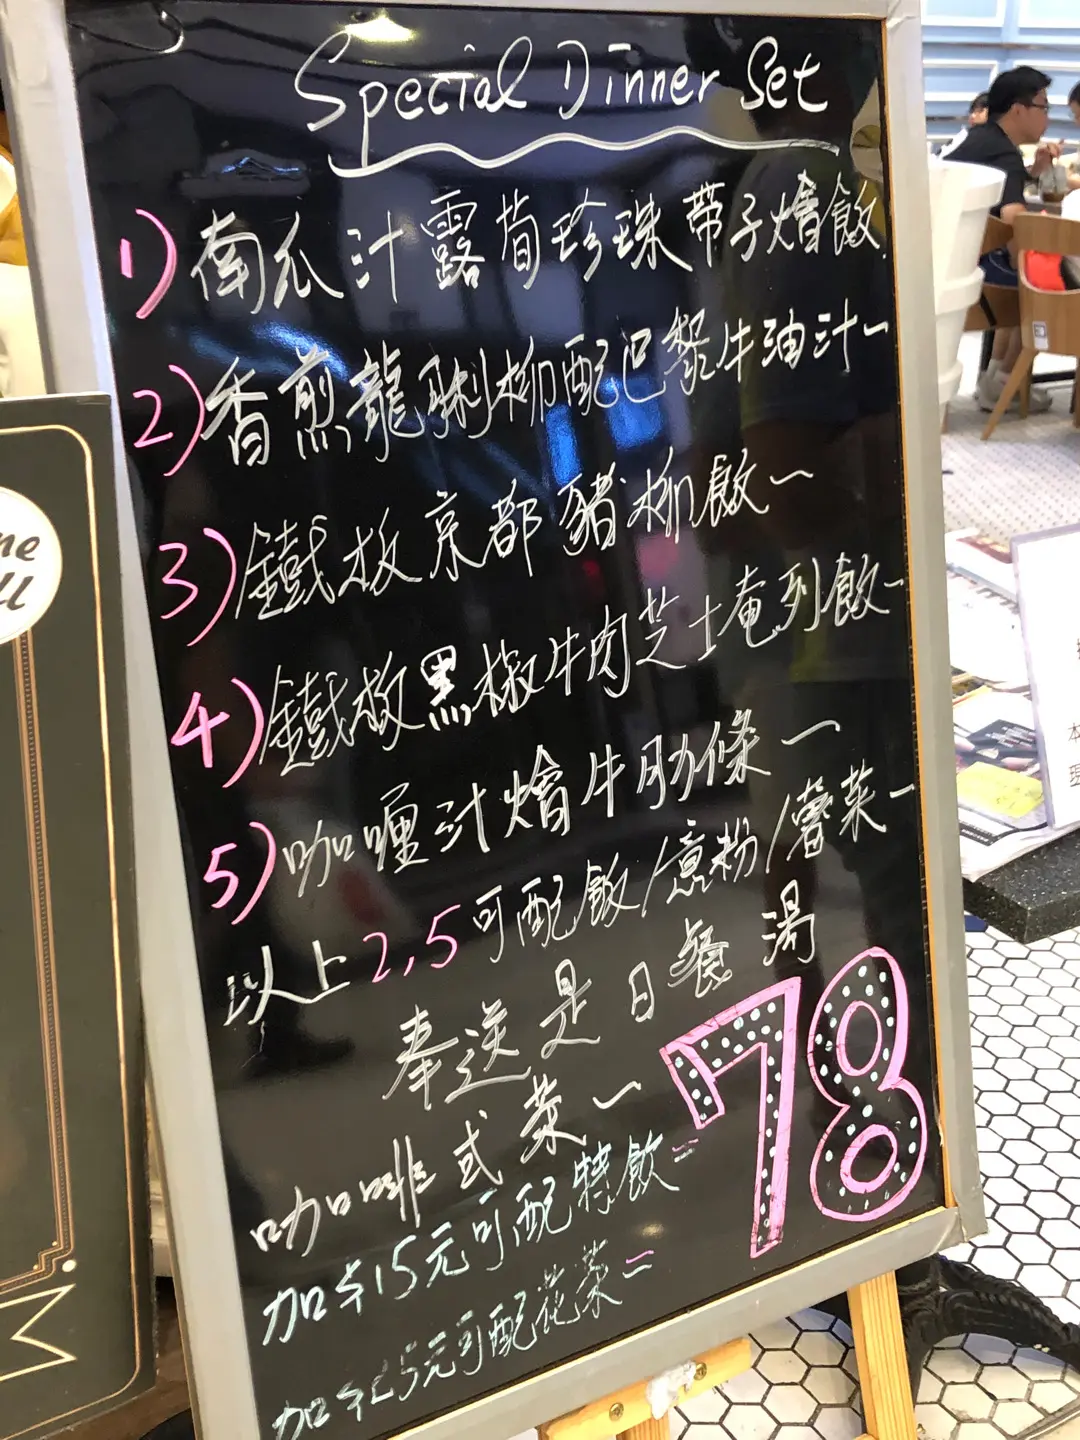 Special Dinner Set
1) 南瓜汁露筍珍珠帶子燴飯
2) 香煎龍脷柳配巴黎牛油汁
3) 鐵板京都豬柳飯
4) 鐵板黑椒牛肉芝士奄列飯
5) 咖喱汁燴牛肋條
以上2,5可配飯/意粉/薯菜
奉送是日餐湯
咖啡或茶
78
加$15元可配特飲
加$25元可配花茶